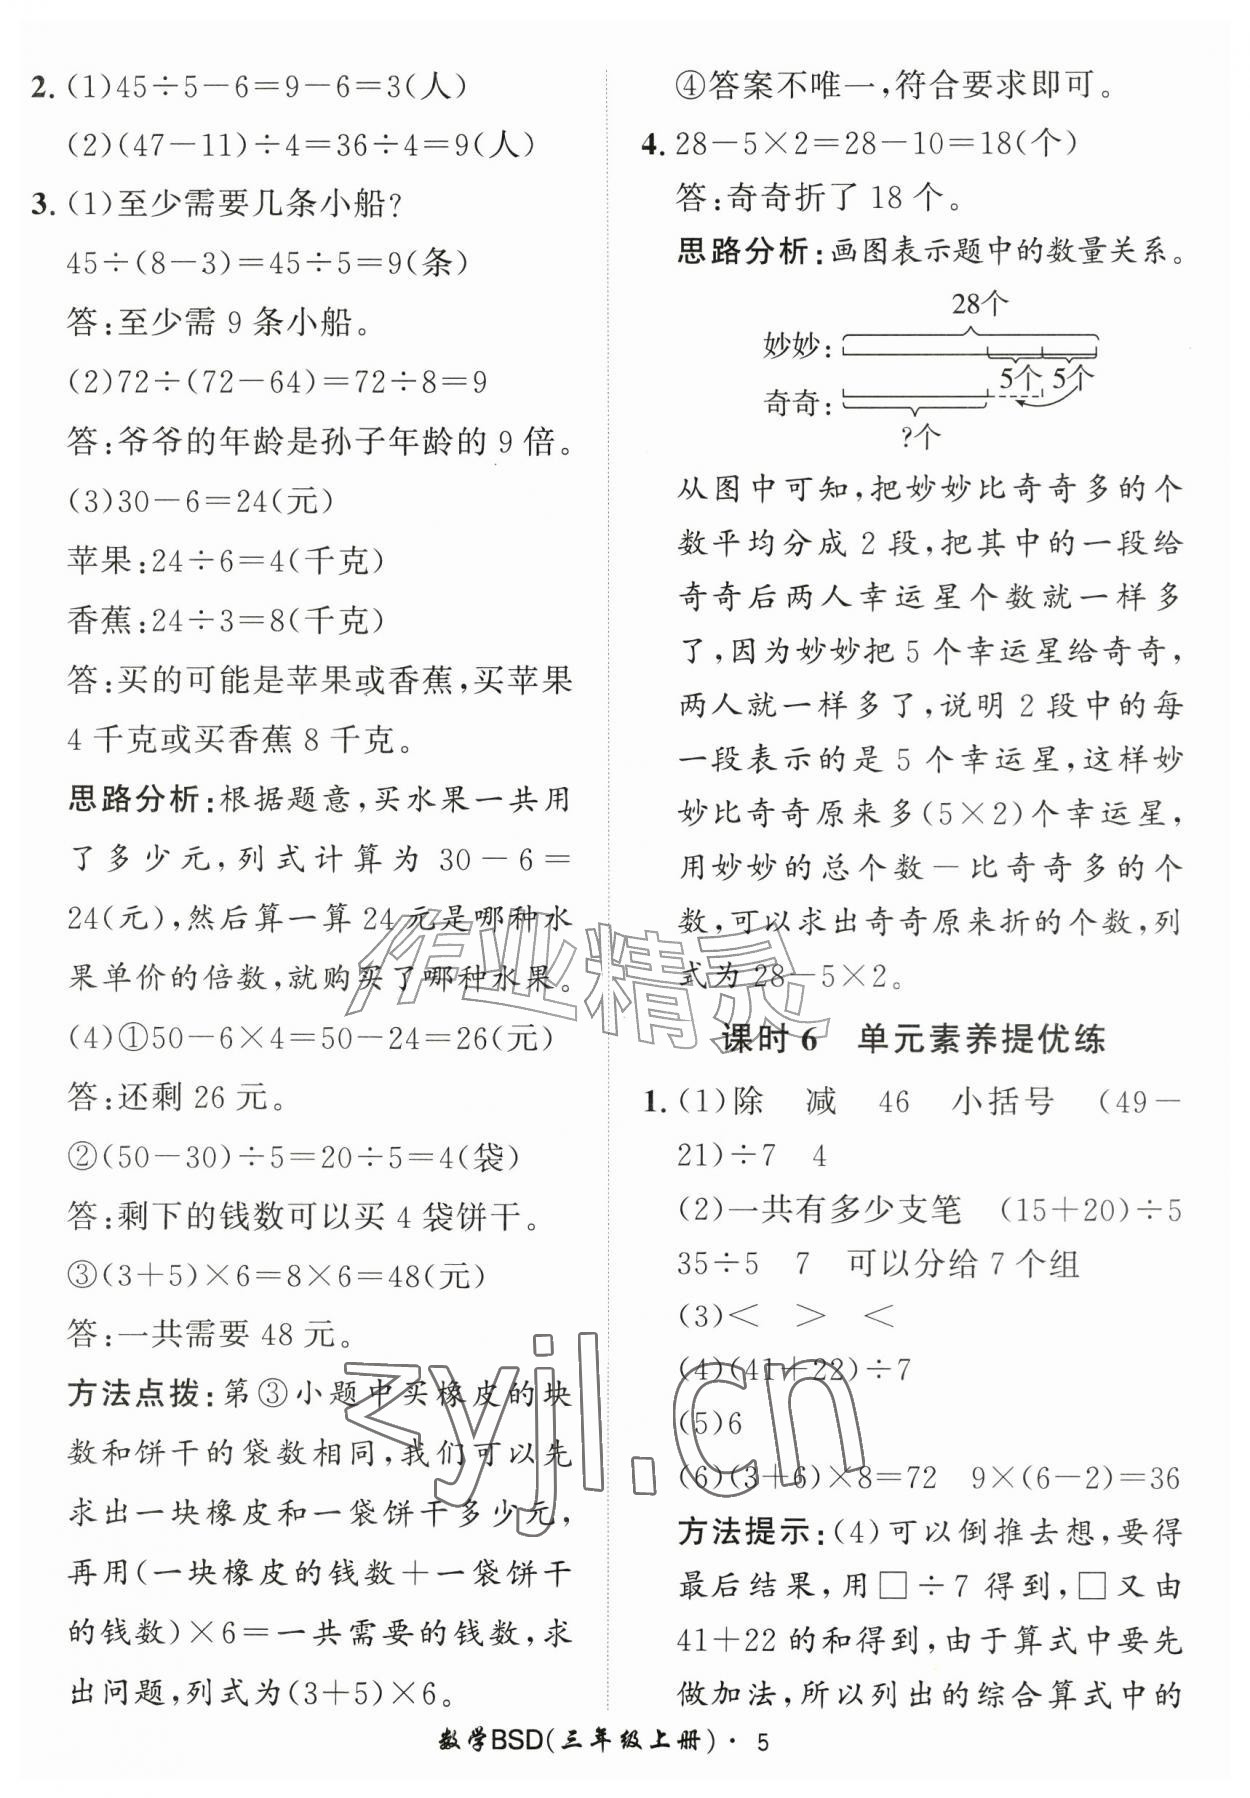 2. (1)45÷5－6＝9－6＝3(人)
(2)(47－11)÷4＝36÷4＝9(人)
3. (1)至少需要几条小船?
45÷(8－3)＝45÷5＝9(条)
答:至少需 9 条小船。
(2)72÷(72－64)＝72÷8＝9
答:爷爷的年龄是孙子年龄的 9 倍。
(3)30－6＝24(元)
苹果:24÷6＝4(千克)
香蕉:24÷3＝8(千克)
答:买的可能是苹果或香蕉,买苹果
4 千克或买香蕉 8 千克。
思路分析:根据题意,买水果一共用
了多少元,列式计算为 30－6＝
24(元),然后算一算 24 元是哪种水
果单价的倍数,就购买了哪种水果。
(4)①50－6×4＝50－24＝26(元)
答:还剩 26 元。
②(50－30)÷5＝20÷5＝4(袋)
答:剩下的钱数可以买 4 袋饼干。
③(3＋5)×6＝8×6＝48(元)
答:一共需要 48 元。
方法点拨:第③小题中买橡皮的块
数和饼干的袋数相同,我们可以先
求出一块橡皮和一袋饼干多少元,
再用(一块橡皮的钱数＋一袋饼干
的钱数)×6＝一共需要的钱数,求
出问题,列式为(3＋5)×6。
④答案不唯一,符合要求即可。
4. 28－5×2＝28－10＝18(个)
答:奇奇折了 18 个。
思路分析:画图表示题中的数量关系。
28个
妙妙:
5个 5个
奇奇:
?个
从图中可知,把妙妙比奇奇多的个
数平均分成 2 段,把其中的一段给
奇奇后两人幸运星个数就一样多
了,因为妙妙把 5 个幸运星给奇奇,
两人就一样多了,说明 2 段中的每
一段表示的是 5 个幸运星,这样妙
妙比奇奇原来多(5×2)个幸运星,
用妙妙的总个数－比奇奇多的个
数,可以求出奇奇原来折的个数,列
式为 28－5×2。
课时 6 单元素养提优练
1. (1)除 减 46 小括号 (49－
21)÷7 4
(2)一共有多少支笔 (15＋20)÷5
35÷5 7 可以分给 7 个组
(3)＜ ＞ ＜
(4)(41＋22)÷7
(5)6
(6)(3＋6)×8＝72 9×(6－2)＝36
方法提示:(4)可以倒推去想,要得
最后结果,用□÷7 得到,□又由
41＋22 的和得到,由于算式中要先
做加法,所以列出的综合算式中的
作业精灵
zyjl.cn
数学BSD(三年级上册)·5